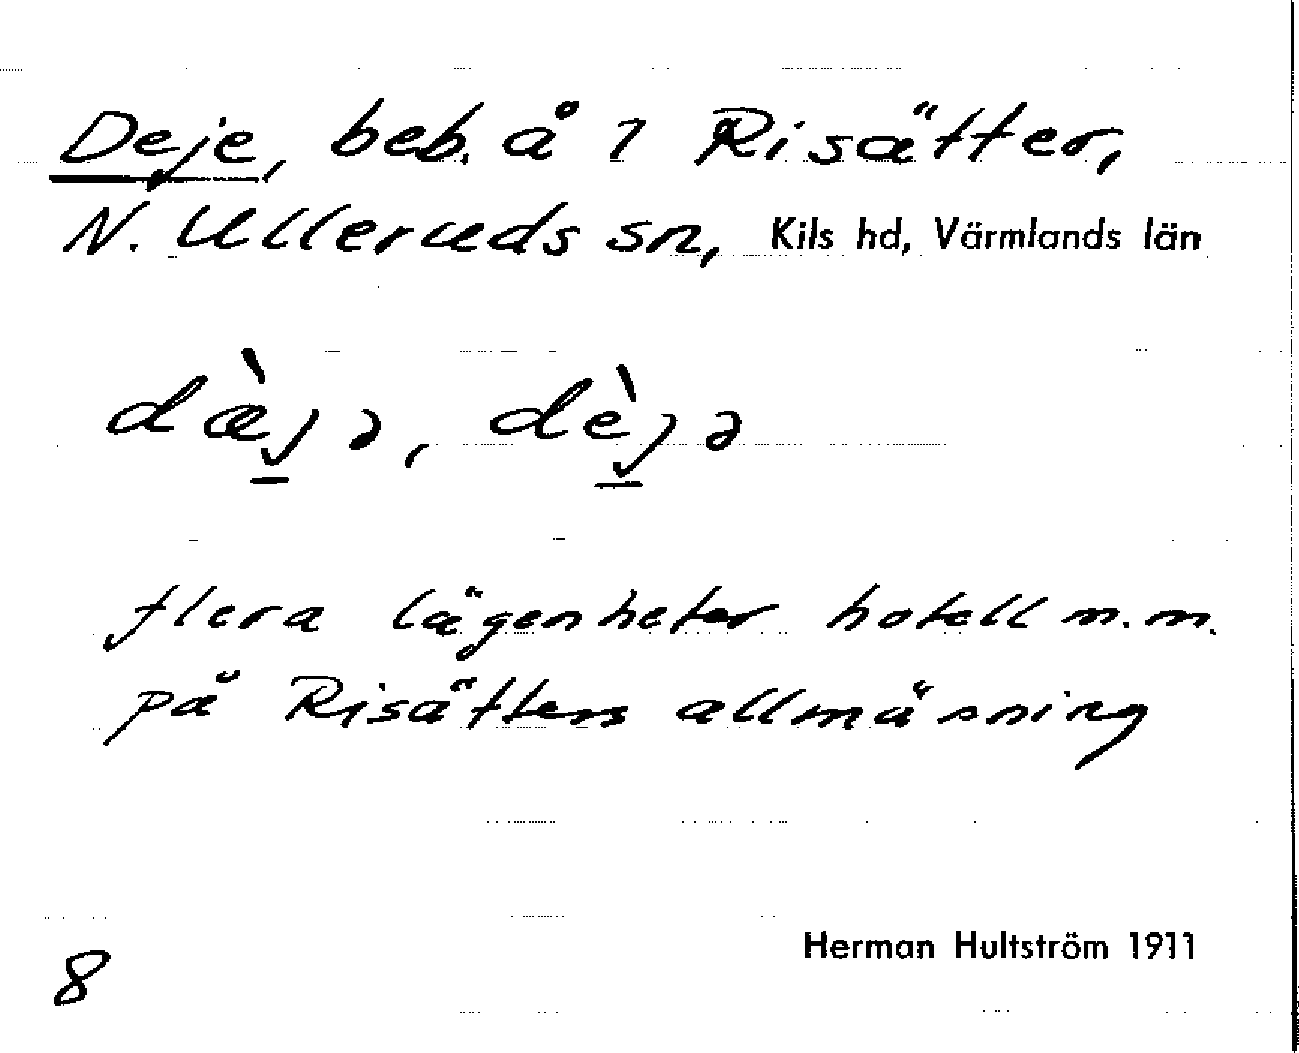 Deje, beb. å 1 Risätter,
N. Ulleruds sn, Kils hd, Värmlands län
dæ̀jə, dèjə
flera lägenheter hotell m.m.
på Risätters allmänning
Herman Hultström 1911
8